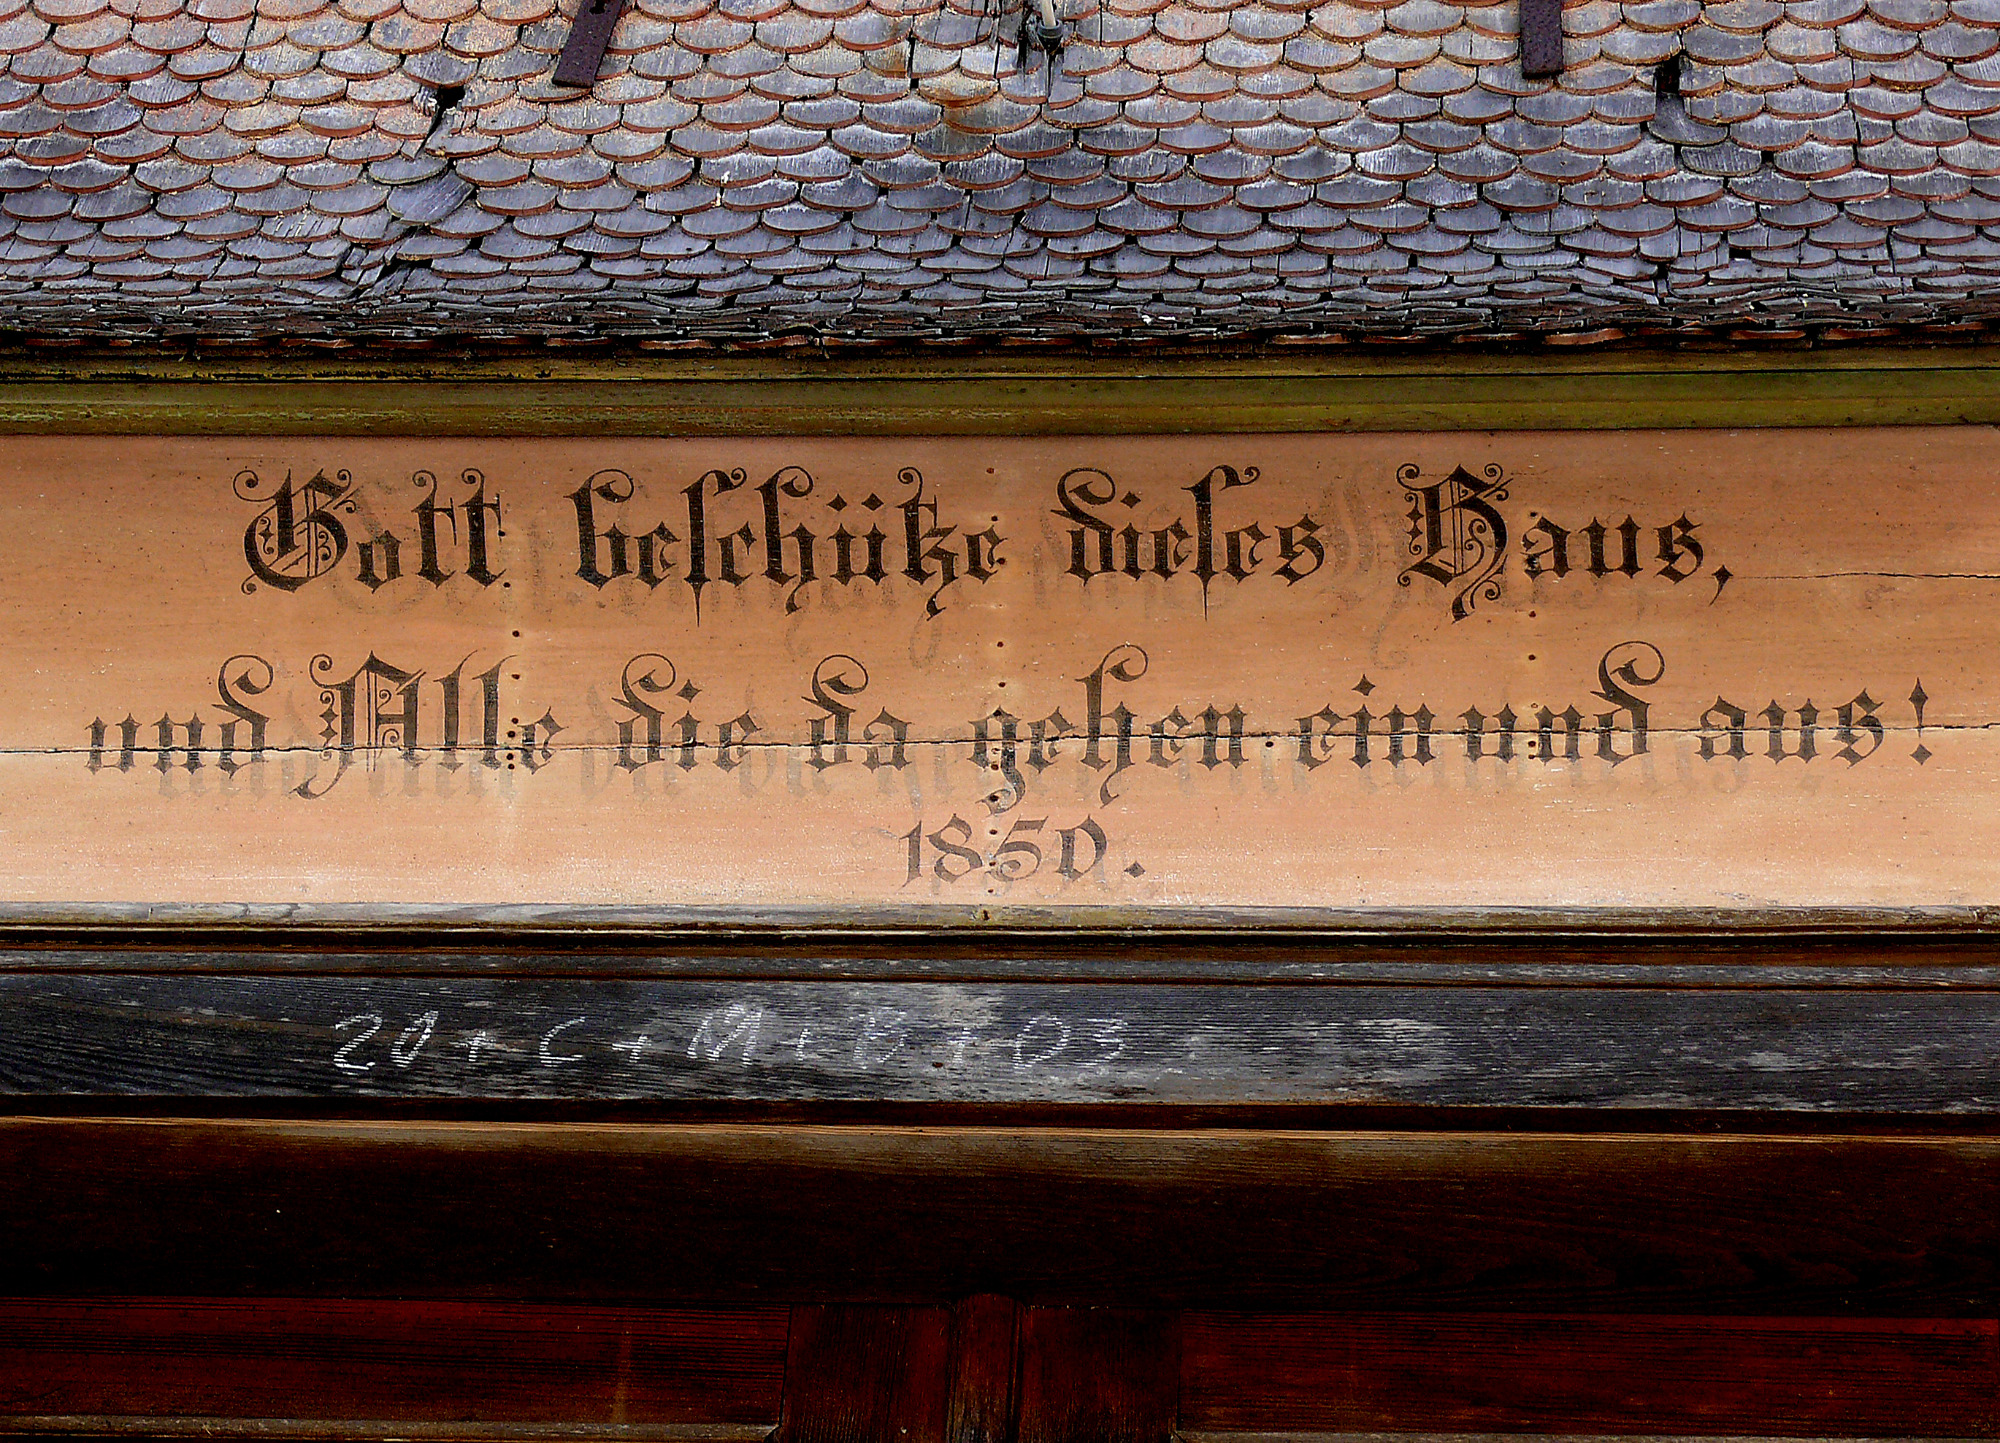 Gott beschütze dieses Haus,
und Alle die da gehen ein und aus!
1850.
20+C+M+B+03